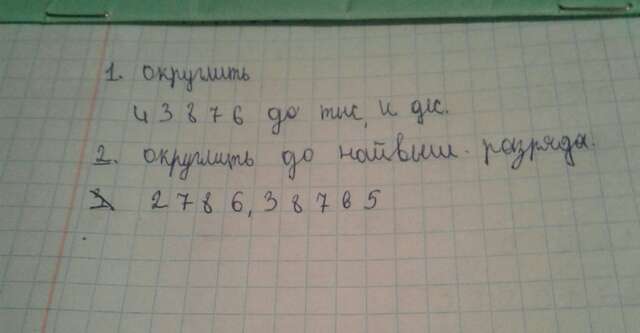 1. округлить
43876 до тыс, и дес.
2. округлить до найвыш. разряда.
2786,38765